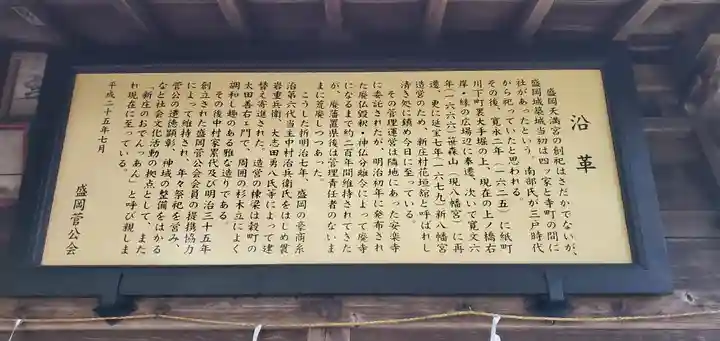 沿革
盛岡天満宮の創祀はさだかでないが、
盛岡城築城当初は四ッ家と寺町の間に
社があったという。南部氏が三戸時代
から祀っていたと思われる。
その後、寛永二年(一六二五)に紙町
川下町裏大手堀の上、現在の上ノ橋右
岸・緑の広場辺に奉遷、次いで寛文六
年(一六六六)笹森山(現八幡宮)に再
遷、更に延宝七年(一六七九)新八幡宮
造営のため、新庄村花垣舘と呼ばれし
清き此処に鎮め今日に至っている。
その管理運営は隣地にあった安楽寺
に委託されたが、明治初年に発布され
た廃仏毀釈・神仏分離令によって廃寺
になるまで約二百年間維持されてきた
が、廃藩置県後は管理責任者のないま
まに荒廃しつつあった。
こうした折明治七年、盛岡の豪商糸
治第六代当主中村治兵衛氏をはじめ鍵
岩重兵衛、大志田勇八氏等によって建
替え寄進された。造営の棟梁は穀町の
太田善右ェ門で、周囲の杉木立によく
調和し趣のある雅な造りである。
その後中村家累代及び明治三十五年
創立された盛岡菅公会会員の提携協力
によって維持され、年々祭祀を営み、
菅公の遺徳顕彰、神域の整備をはかる
など社会文化活動の拠点として、また
「新庄のおでんつあん」と呼び親しま
れ現在に至っている。
平成二十五年七月
盛岡菅公会